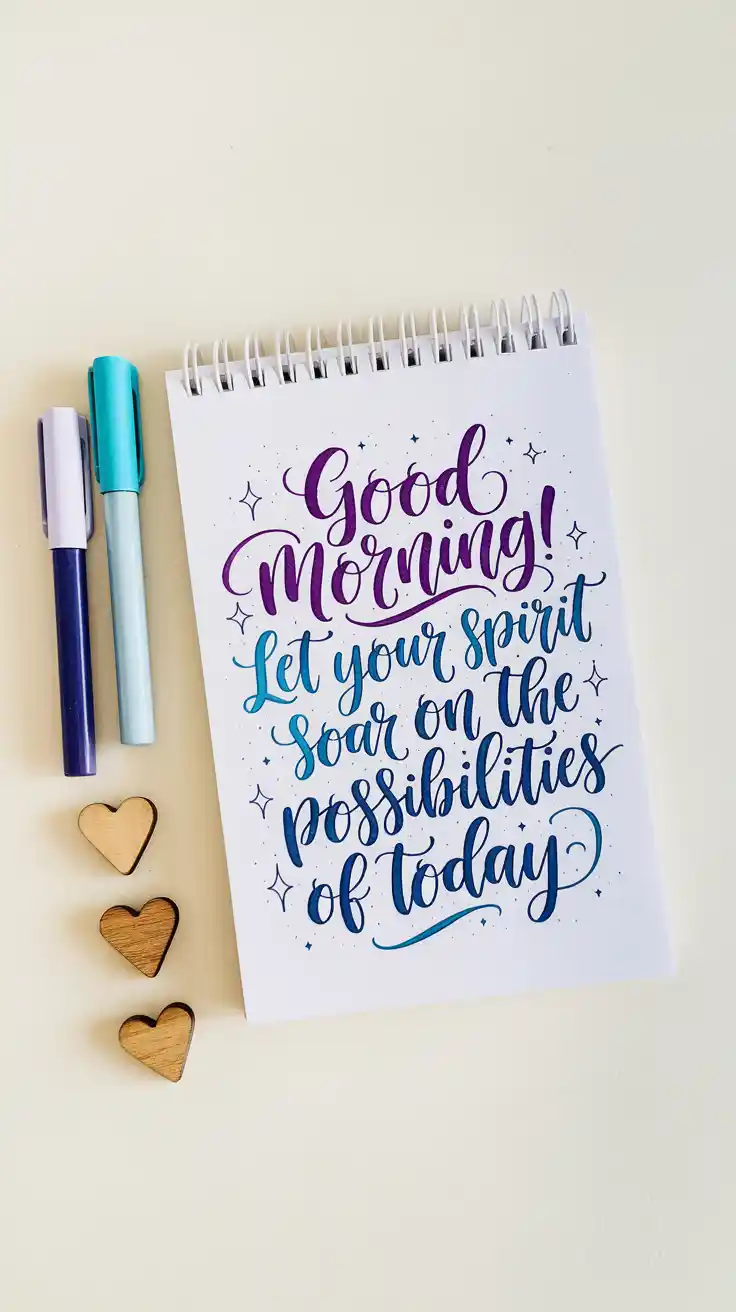 Good
Morning!
Let your spirit
soar on the
possibilities
of today